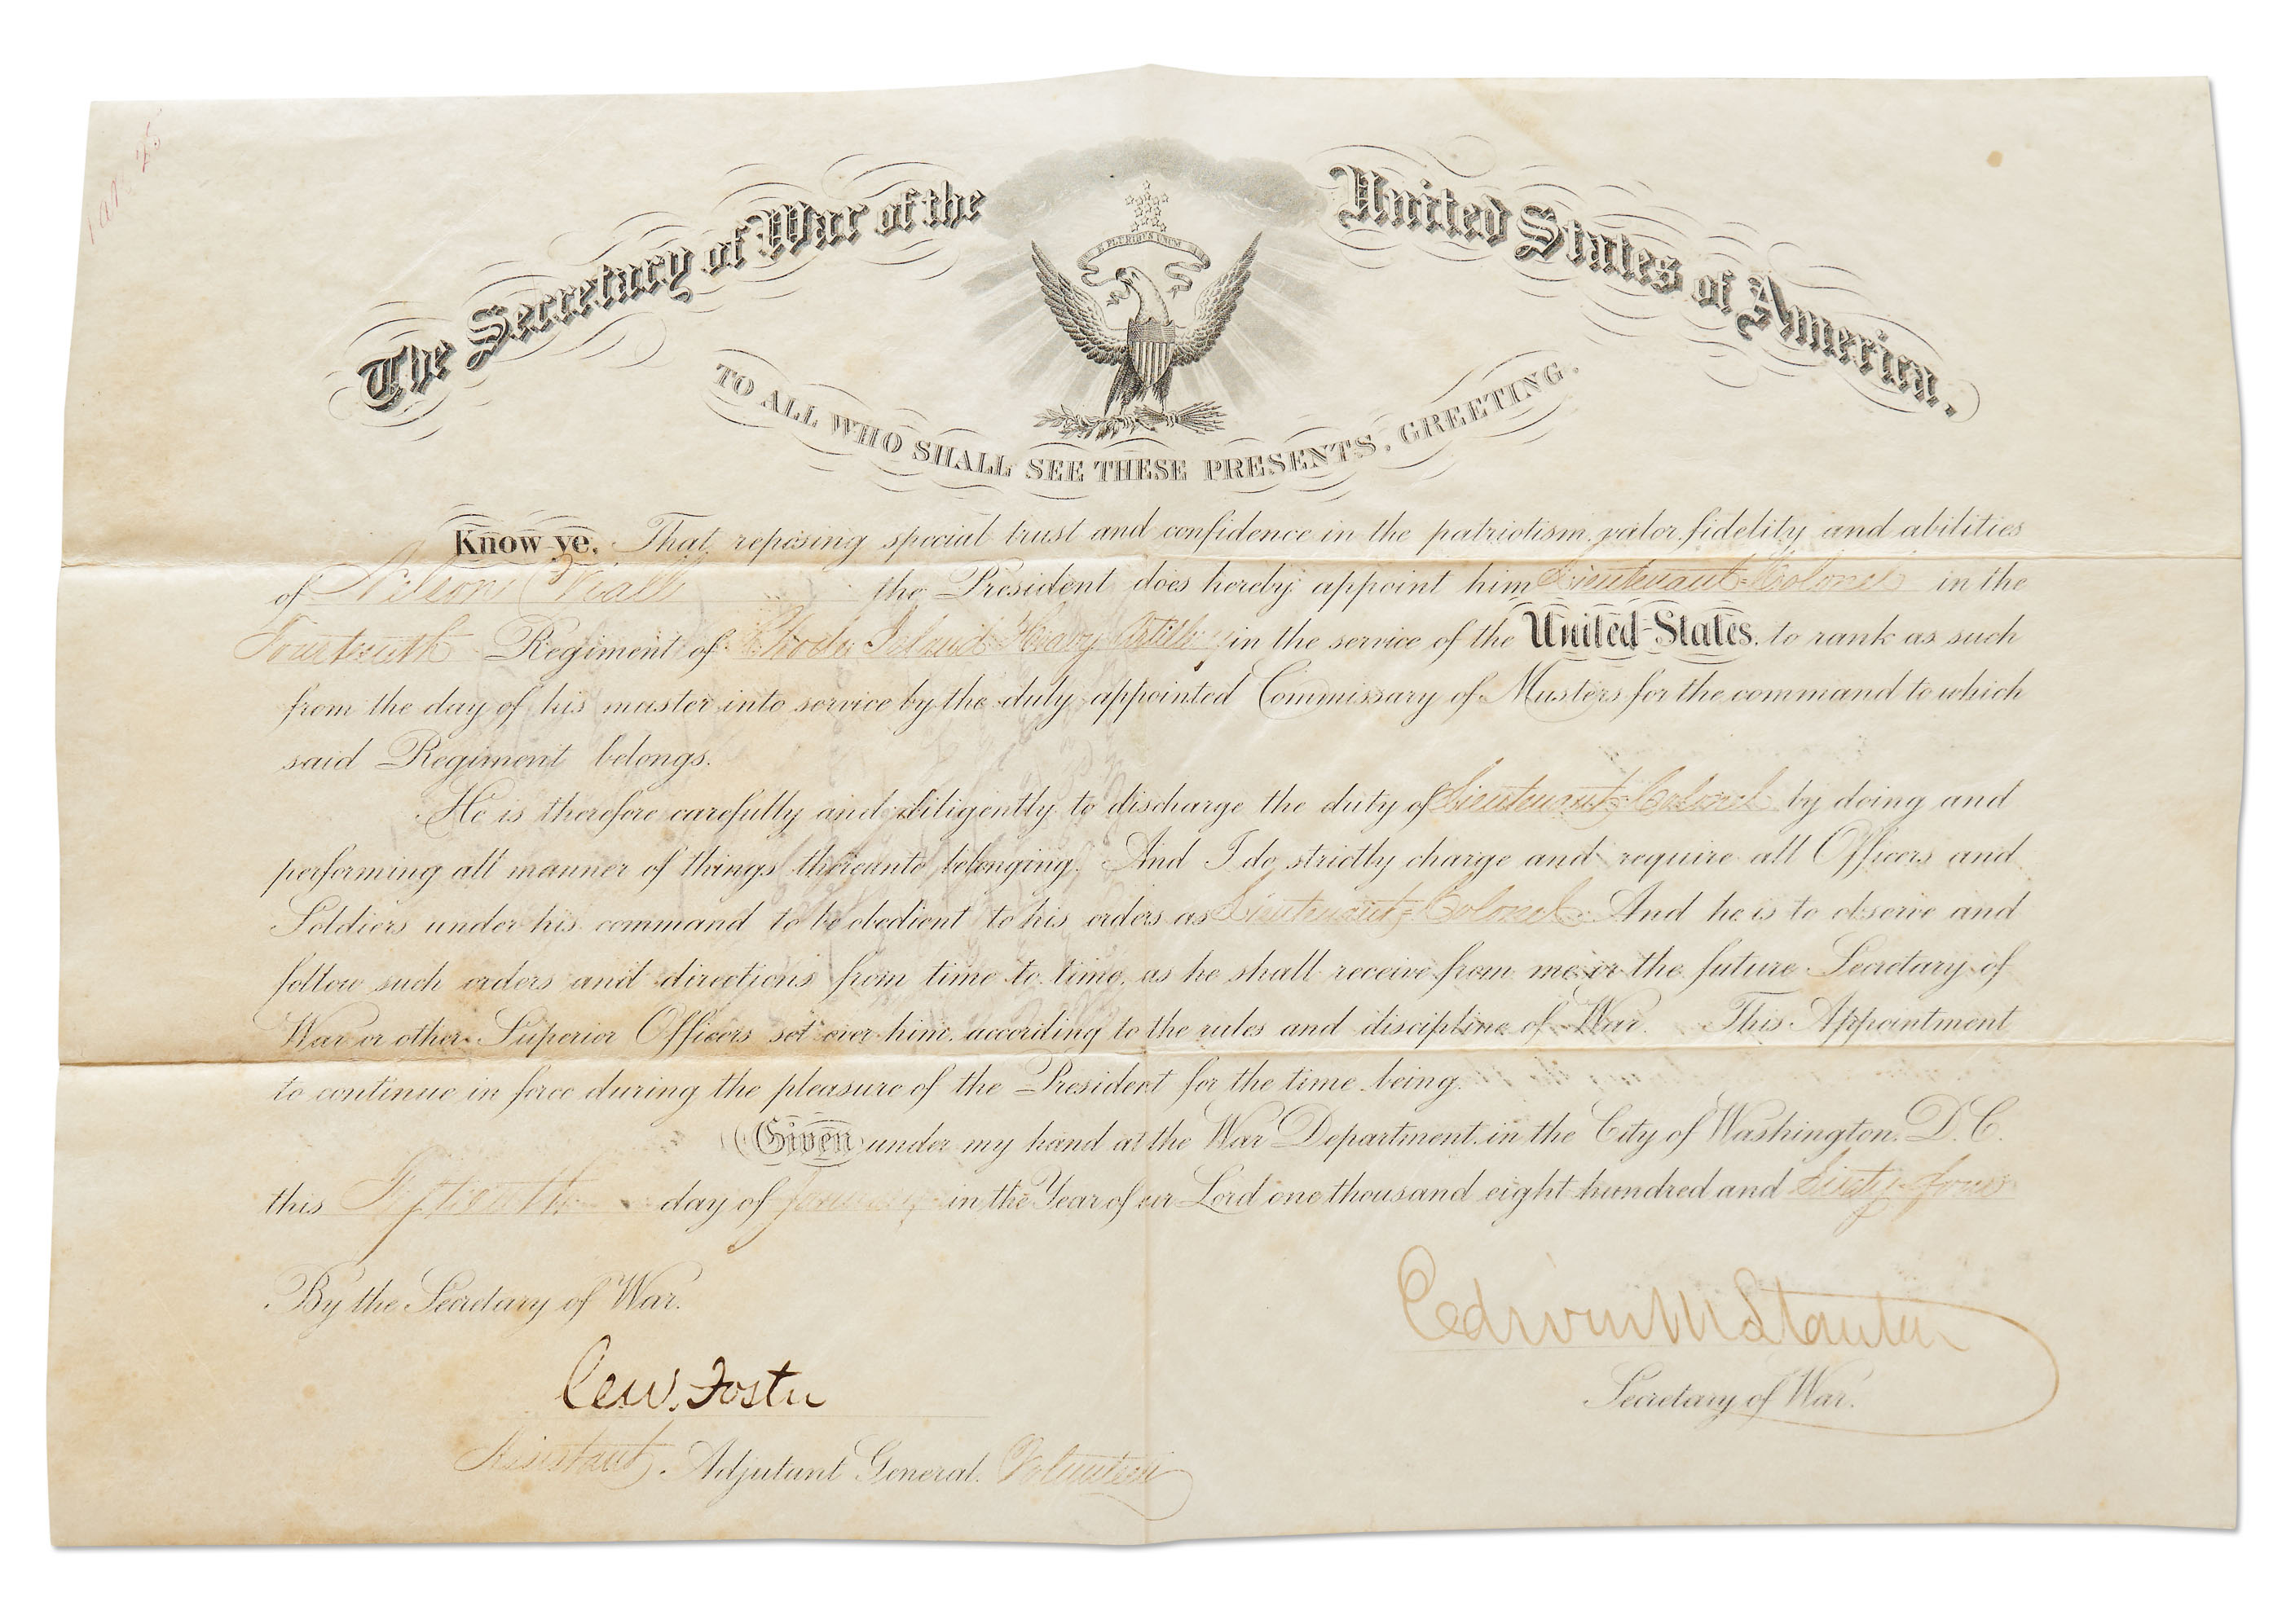 The Secretary of War of the United States of America.
E PLURIBUS UNUM
TO ALL WHO SHALL SEE THESE PRESENTS, GREETING.
Know ye, That, reposing special trust and confidence in the patriotism, valor, fidelity and abilities
of Nelson Viall the President does hereby appoint him Lieutenant-Colonel in the
Fourteenth Regiment of Rhode Island Heavy Artillery in the service of the United States, to rank as such
from the day of his muster into service by the duly appointed Commissary of Musters for the command to which
said Regiment belongs.
He is therefore carefully and diligently to discharge the duty of Lieutenant-Colonel by doing and
performing all manner of things thereunto belonging. And I do strictly charge and require all Officers and
Soldiers under his command to be obedient to his orders as Lieutenant-Colonel And he is to observe and
follow such orders and directions from time to time, as he shall receive from me or the future Secretary of
War or other Superior Officers set over him, according to the rules and discipline of War. This Appointment
to continue in force during the pleasure of the President for the time being.
Given under my hand at the War Department in the City of Washington, D.C.
this Fifteenth day of January in the Year of our Lord one thousand eight hundred and Sixty-four
By the Secretary of War.
Edwin M Stanton
Secretary of War.
C W. Foster
Assistant Adjutant General. Volunteers